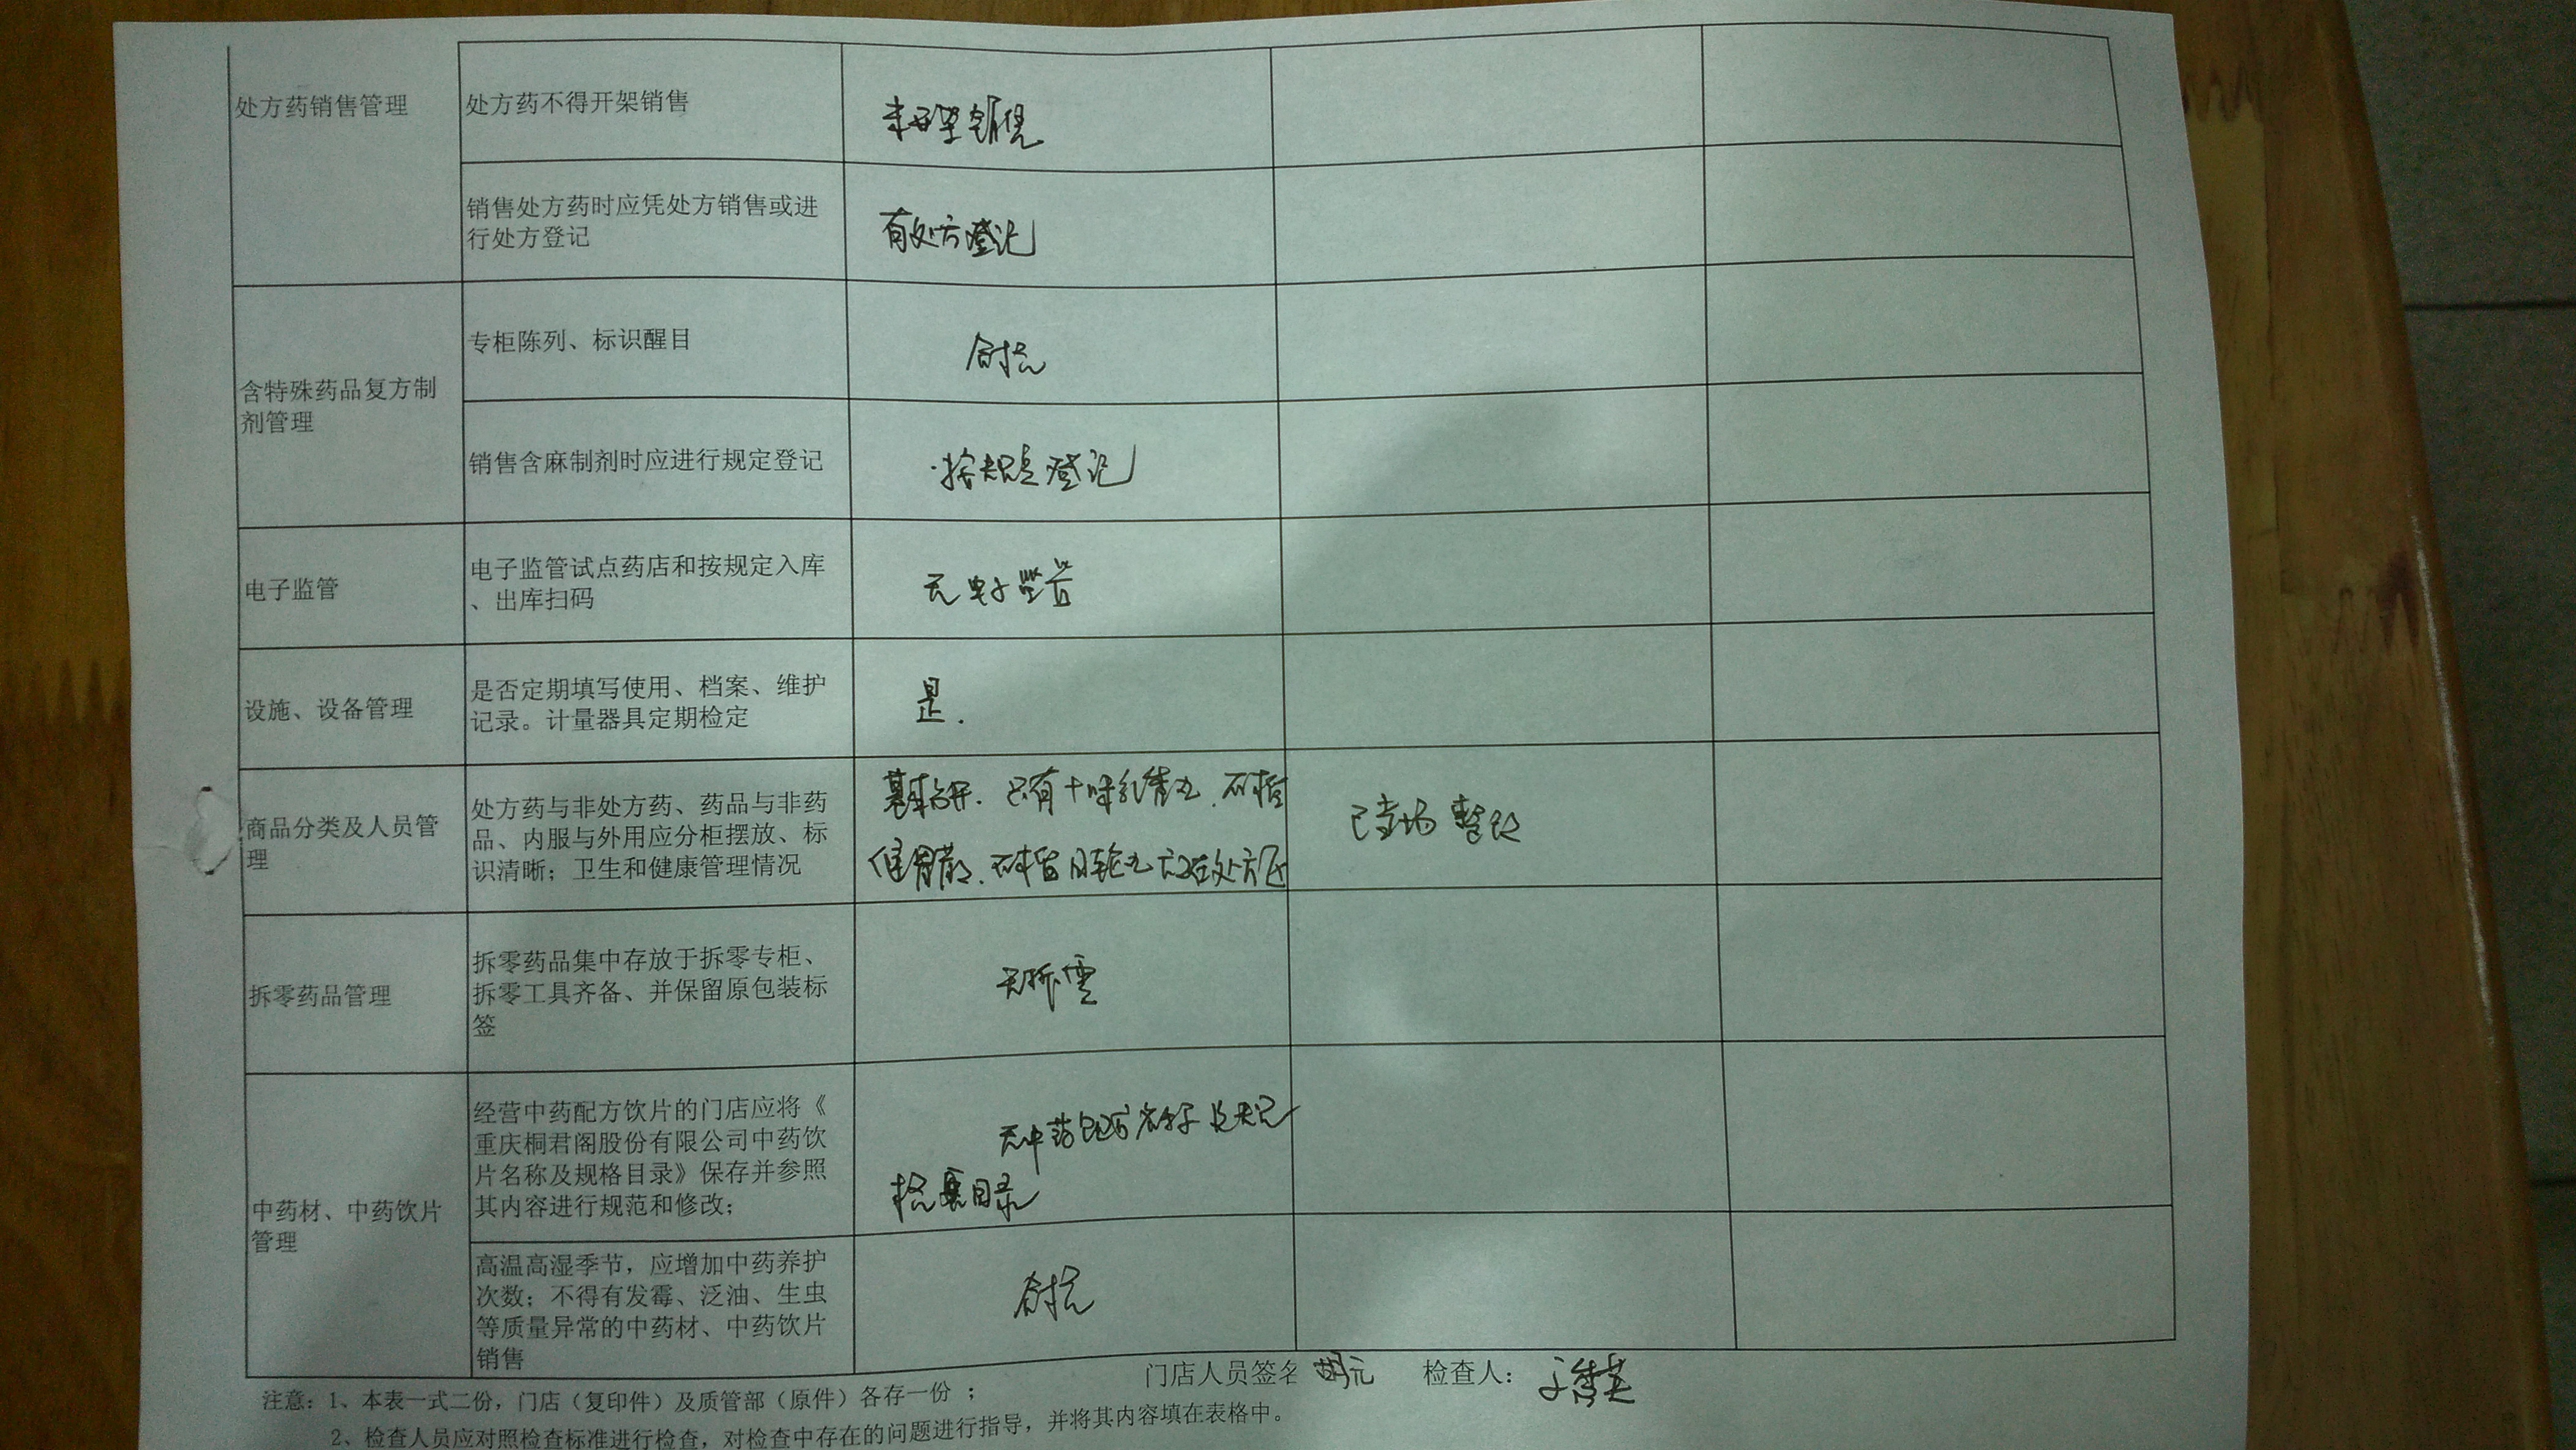 处方药销售管理
处方药不得开架销售
未开架销售
销售处方药时应凭处方销售或进
行处方登记
有处方登记
含特殊药品复方制
剂管理
专柜陈列、标识醒目
合格
销售含麻制剂时应进行规定登记
按规定登记
电子监管
电子监管试点药店和按规定入库
、出库扫码
无电子监管
设施、设备管理
是否定期填写使用、档案、维护
记录。计量器具定期检定
是.
商品分类及人员管
理
处方药与非处方药、药品与非药
品、内服与外用应分柜摆放、标
识清晰；卫生和健康管理情况
基本分开. 只有十味乳香丸.
处方区
已当场整改
拆零药品管理
拆零药品集中存放于拆零专柜、
拆零工具齐备、并保留原包装标
签
无拆零
中药材、中药饮片
管理
经营中药配方饮片的门店应将《
重庆桐君阁股份有限公司中药饮
片名称及规格目录》保存并参照
其内容进行规范和修改；
无中药
目录
高温高湿季节，应增加中药养护
次数；不得有发霉、泛油、生虫
等质量异常的中药材、中药饮片
销售
合格
门店人员签名 检查人：
注意：1、本表一式二份，门店（复印件）及质管部（原件）各存一份 ；
2、检查人员应对照检查标准进行检查，对检查中存在的问题进行指导，并将其内容填在表格中。